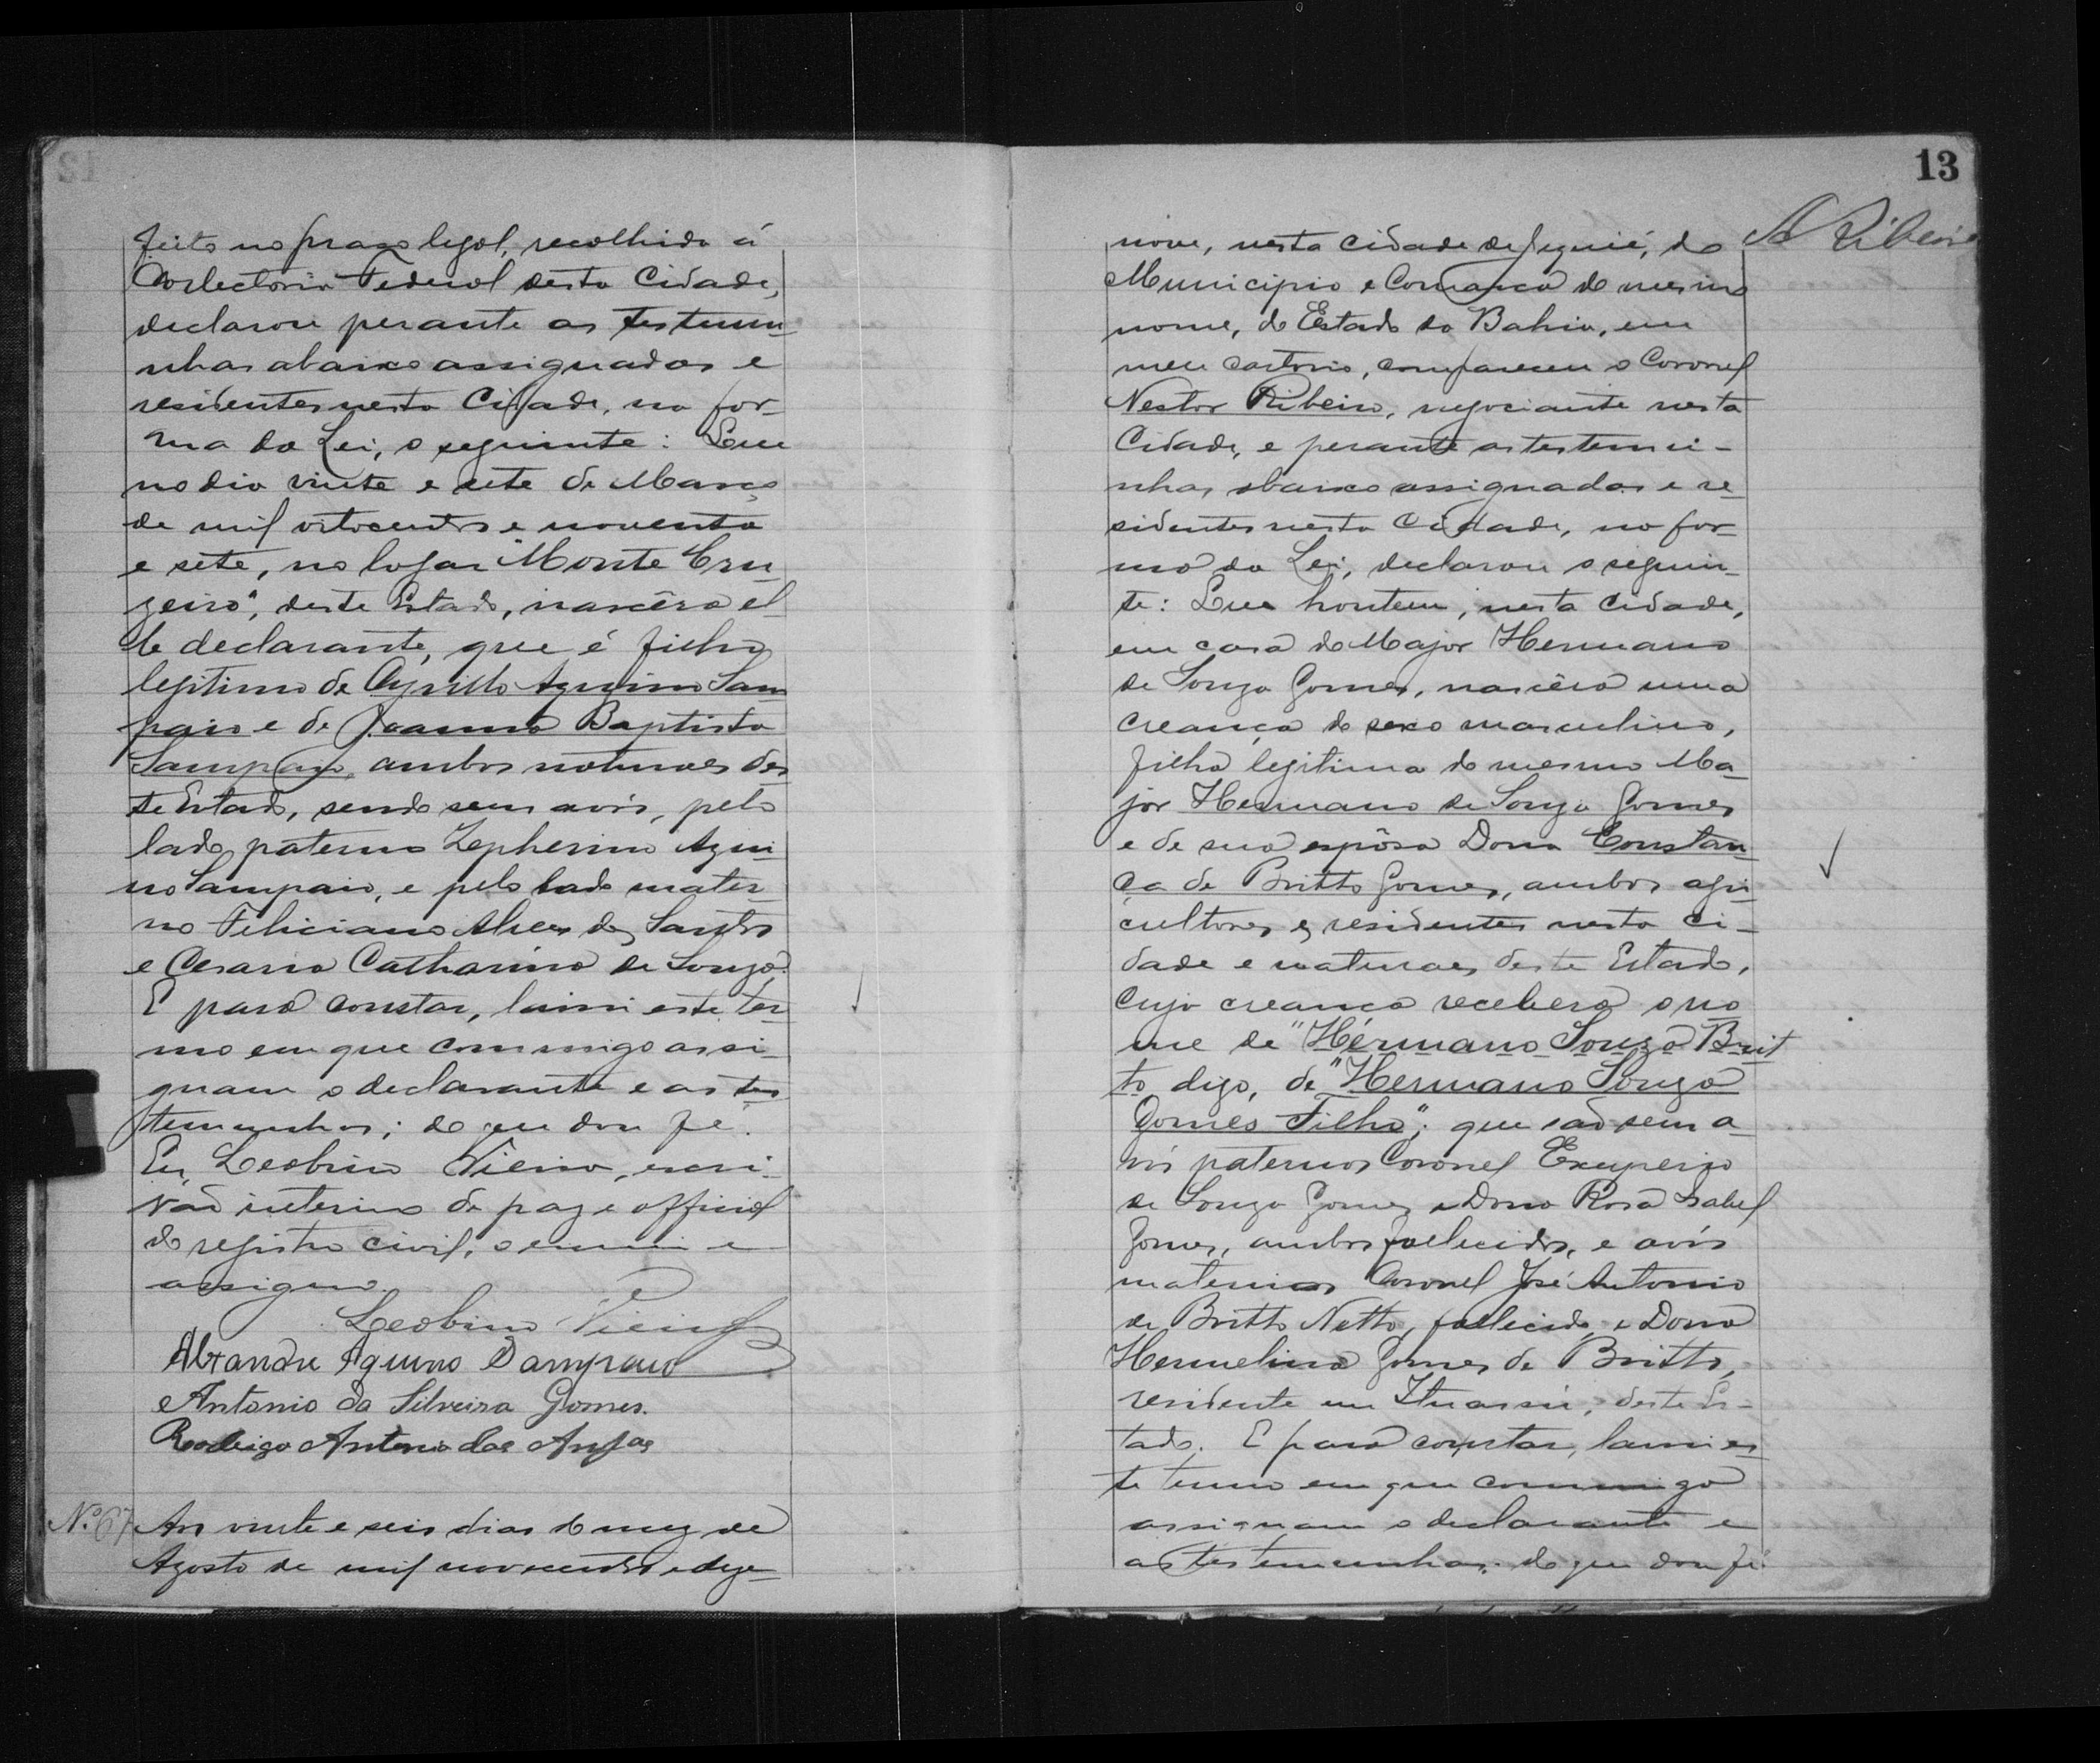 feito no praso legal, recolhido á
Collectoria Federal desta Cidade,
declarou perante as testemu-
nhas abaixo assignadas e
residentes nesta Cidade, na for-
ma da Lei, o seguinte: Que
no dia vinte e sete de Março
de mil oitocentos e noventa
e sete, no logar "Monte Cru-
zeiro", deste Estado, nascêra el-
le declarante, que é filho
legitimo de Cyrillo Aquino Sam
paio e de Joanna Baptista
Sampaio, ambos naturaes des
te Estado, sendo seus avós, pelo
lado paterno Zepherino Aqui-
no Sampaio, e pelo lado mater-
no Feliciano Alves dos Santos
e Cesaria Catharina de Souza.
E para constar, lavrei este ter-
mo em que commigo assi-
gnam o declarante e as tes
temunhas; do que dou fé.
Eu, Leobino Vieira, escri-
vão interino de paz e official
do registro civil, o escrevi e
assigno.
Leobino Vieira
Alexandre Aquino Sampaio
Antonio da Silveira Gomes.
Rodrigo Antonio dos Anjos
N.º 67 Aos vinte e seis dias do mez de
Agosto de mil novecentos e deze-
13
N Ribeiro
nove, nesta cidade de Jequié, do
Municipio e Comarca do mesmo
nome, do Estado da Bahia, em
meu cartorio, compareceu o Coronel
Nestor Ribeiro, negociante nesta
Cidade, e perante as testemu-
nhas abaixo assignadas e re-
sidentes nesta Cidade, na for-
ma da Lei, declarou o seguin-
te: Que hontem, nesta cidade,
em casa do Major Hermano
de Souza Gomes, nascêra uma
creança do sexo masculino,
filha legitima do mesmo Ma-
jor Hermano de Souza Gomes
e de sua espôsa Dona Constan-
ça de Britto Gomes, ambos agri-
cultores e residentes nesta ci-
dade e naturaes deste Estado,
cuja creança receberá o no
me de "Hermano Souza Brit
to, digo, de "Hermano Souza
Gomes Filho"; que são seus a-
vós paternos Coronel Exuperio
de Souza Gomes e Dona Rosa Isabel
Gomes, ambos fallecidos, e avós
maternos Coronel José Antonio
de Britto Netto, fallecido, e Dona
Hermelina Gomes de Britto,
residente em Ituassú, deste Es-
tado. E para constar, lavrei es
te termo em que commigo
assignam o declarante e
as testemunhas; do que dou fé